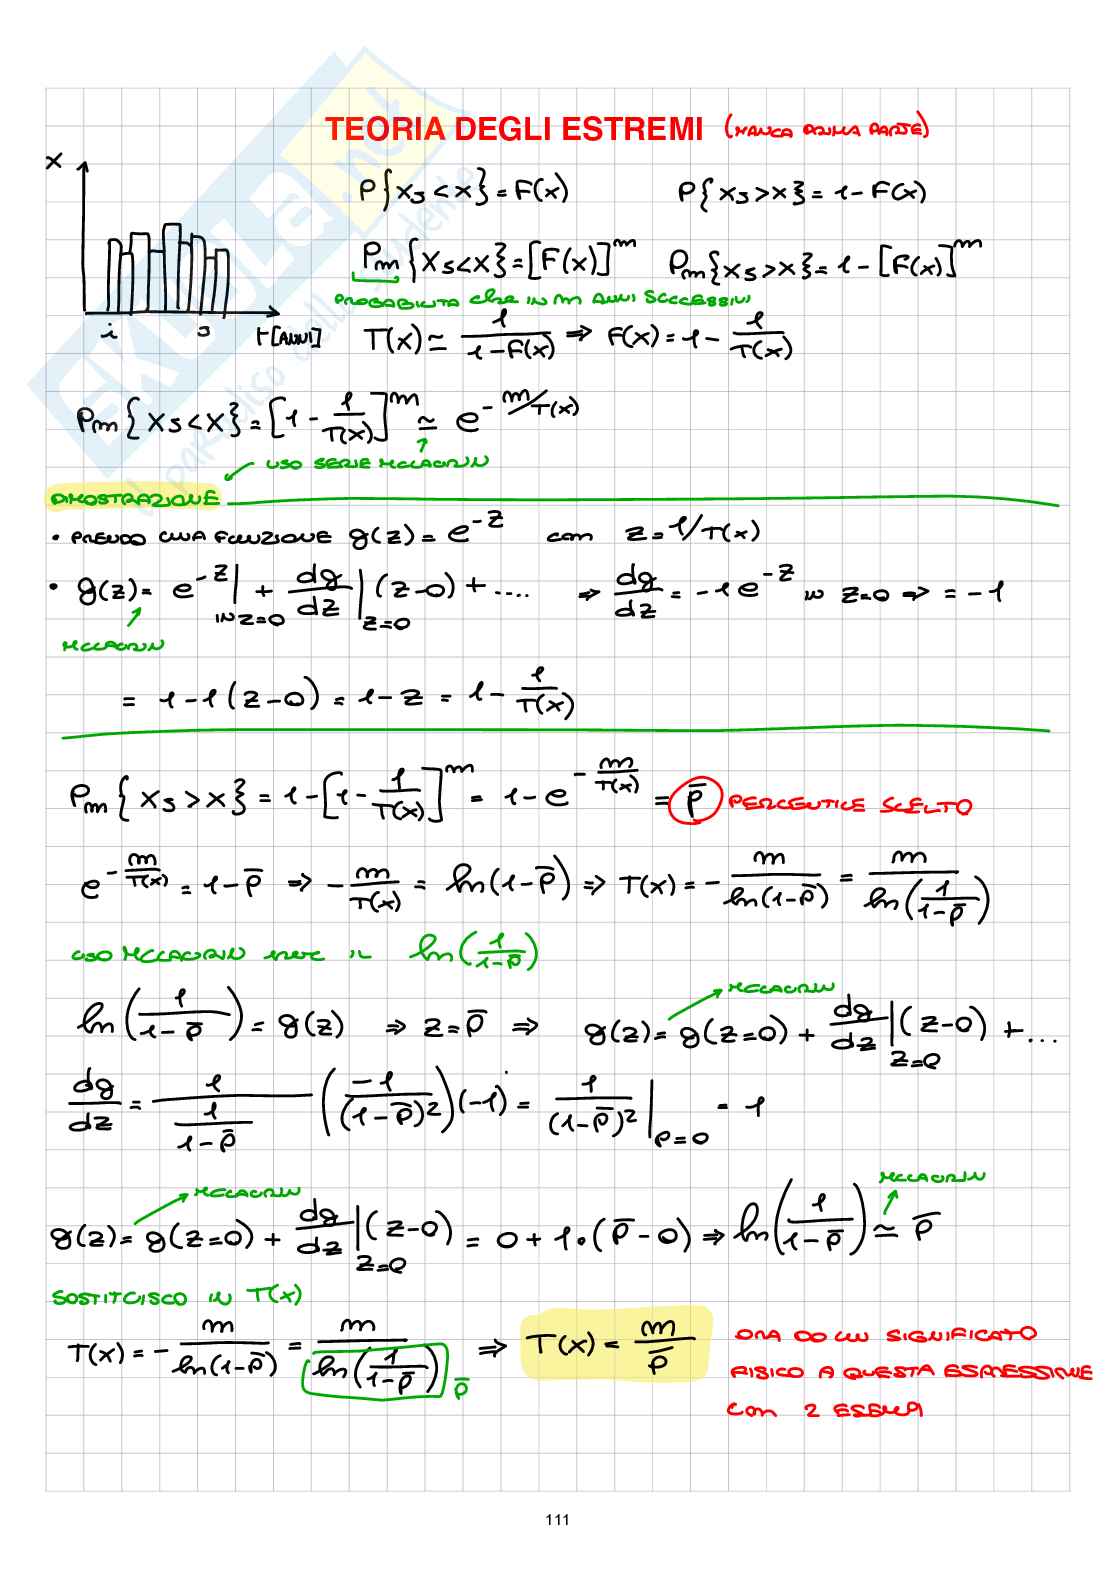 TEORIA DEGLI ESTREMI (MANCA PRIMA PARTE)
x
P{xs < x} = F(x)    P{xs > x} = 1 - F(x)
Pm{xs < x} = [F(x)]^m    Pm{xs > x} = 1 - [F(x)]^m
PROBABILITA che IN m ANNI SUCCESSIVI
i    s    t [ANNI]
T(x) ≃ 1/(1-F(x)) ⇒ F(x) = 1 - 1/T(x)
Pm{xs < x} = [1 - 1/T(x)]^m ≃ e^(-m/T(x))
USO SERIE MCLAURIN
DIMOSTRAZIONE
• PRENDO UNA FUNZIONE g(z) = e^(-z) con z = 1/T(x)
• g(z) = e^(-z)| IN z=0 + dg/dz |z=0 (z-0) + .... ⇒ dg/dz = -1 e^(-z) IN z=0 ⇒ = -1
MCLAURIN
= 1 - 1(z-0) = 1 - z = 1 - 1/T(x)
Pm{xs > x} = 1 - [1 - 1/T(x)]^m = 1 - e^(-m/T(x)) = P̄ PERCENTILE SCELTO
e^(-m/T(x)) = 1 - P̄ ⇒ -m/T(x) = ln(1-P̄) ⇒ T(x) = -m/ln(1-P̄) = m/ln(1/(1-P̄))
USO MCLAURIN IL ln(1/(1-P̄))
MCLAURIN
ln(1/(1-P̄)) = g(z) ⇒ z = P̄ ⇒ g(z) = g(z=0) + dg/dz |z=0 (z-0) + ...
dg/dz = 1/(1/(1-P̄)) (-1/(1-P̄)^2)(-1) = 1/(1-P̄)^2 |P=0 = 1
MCLAURIN    MCLAURIN
g(z) = g(z=0) + dg/dz |z=0 (z-0) = 0 + 1·(P̄-0) ⇒ ln(1/(1-P̄)) ≃ P̄
SOSTITUISCO IN T(x)
T(x) = -m/ln(1-P̄) = m/ln(1/(1-P̄)) P̄ ⇒ T(x) = m/P̄
ORA DO UN SIGNIFICATO
FISICO A QUESTA ESPRESSIONE
con 2 ESEMPI
111
SKUOLA.net